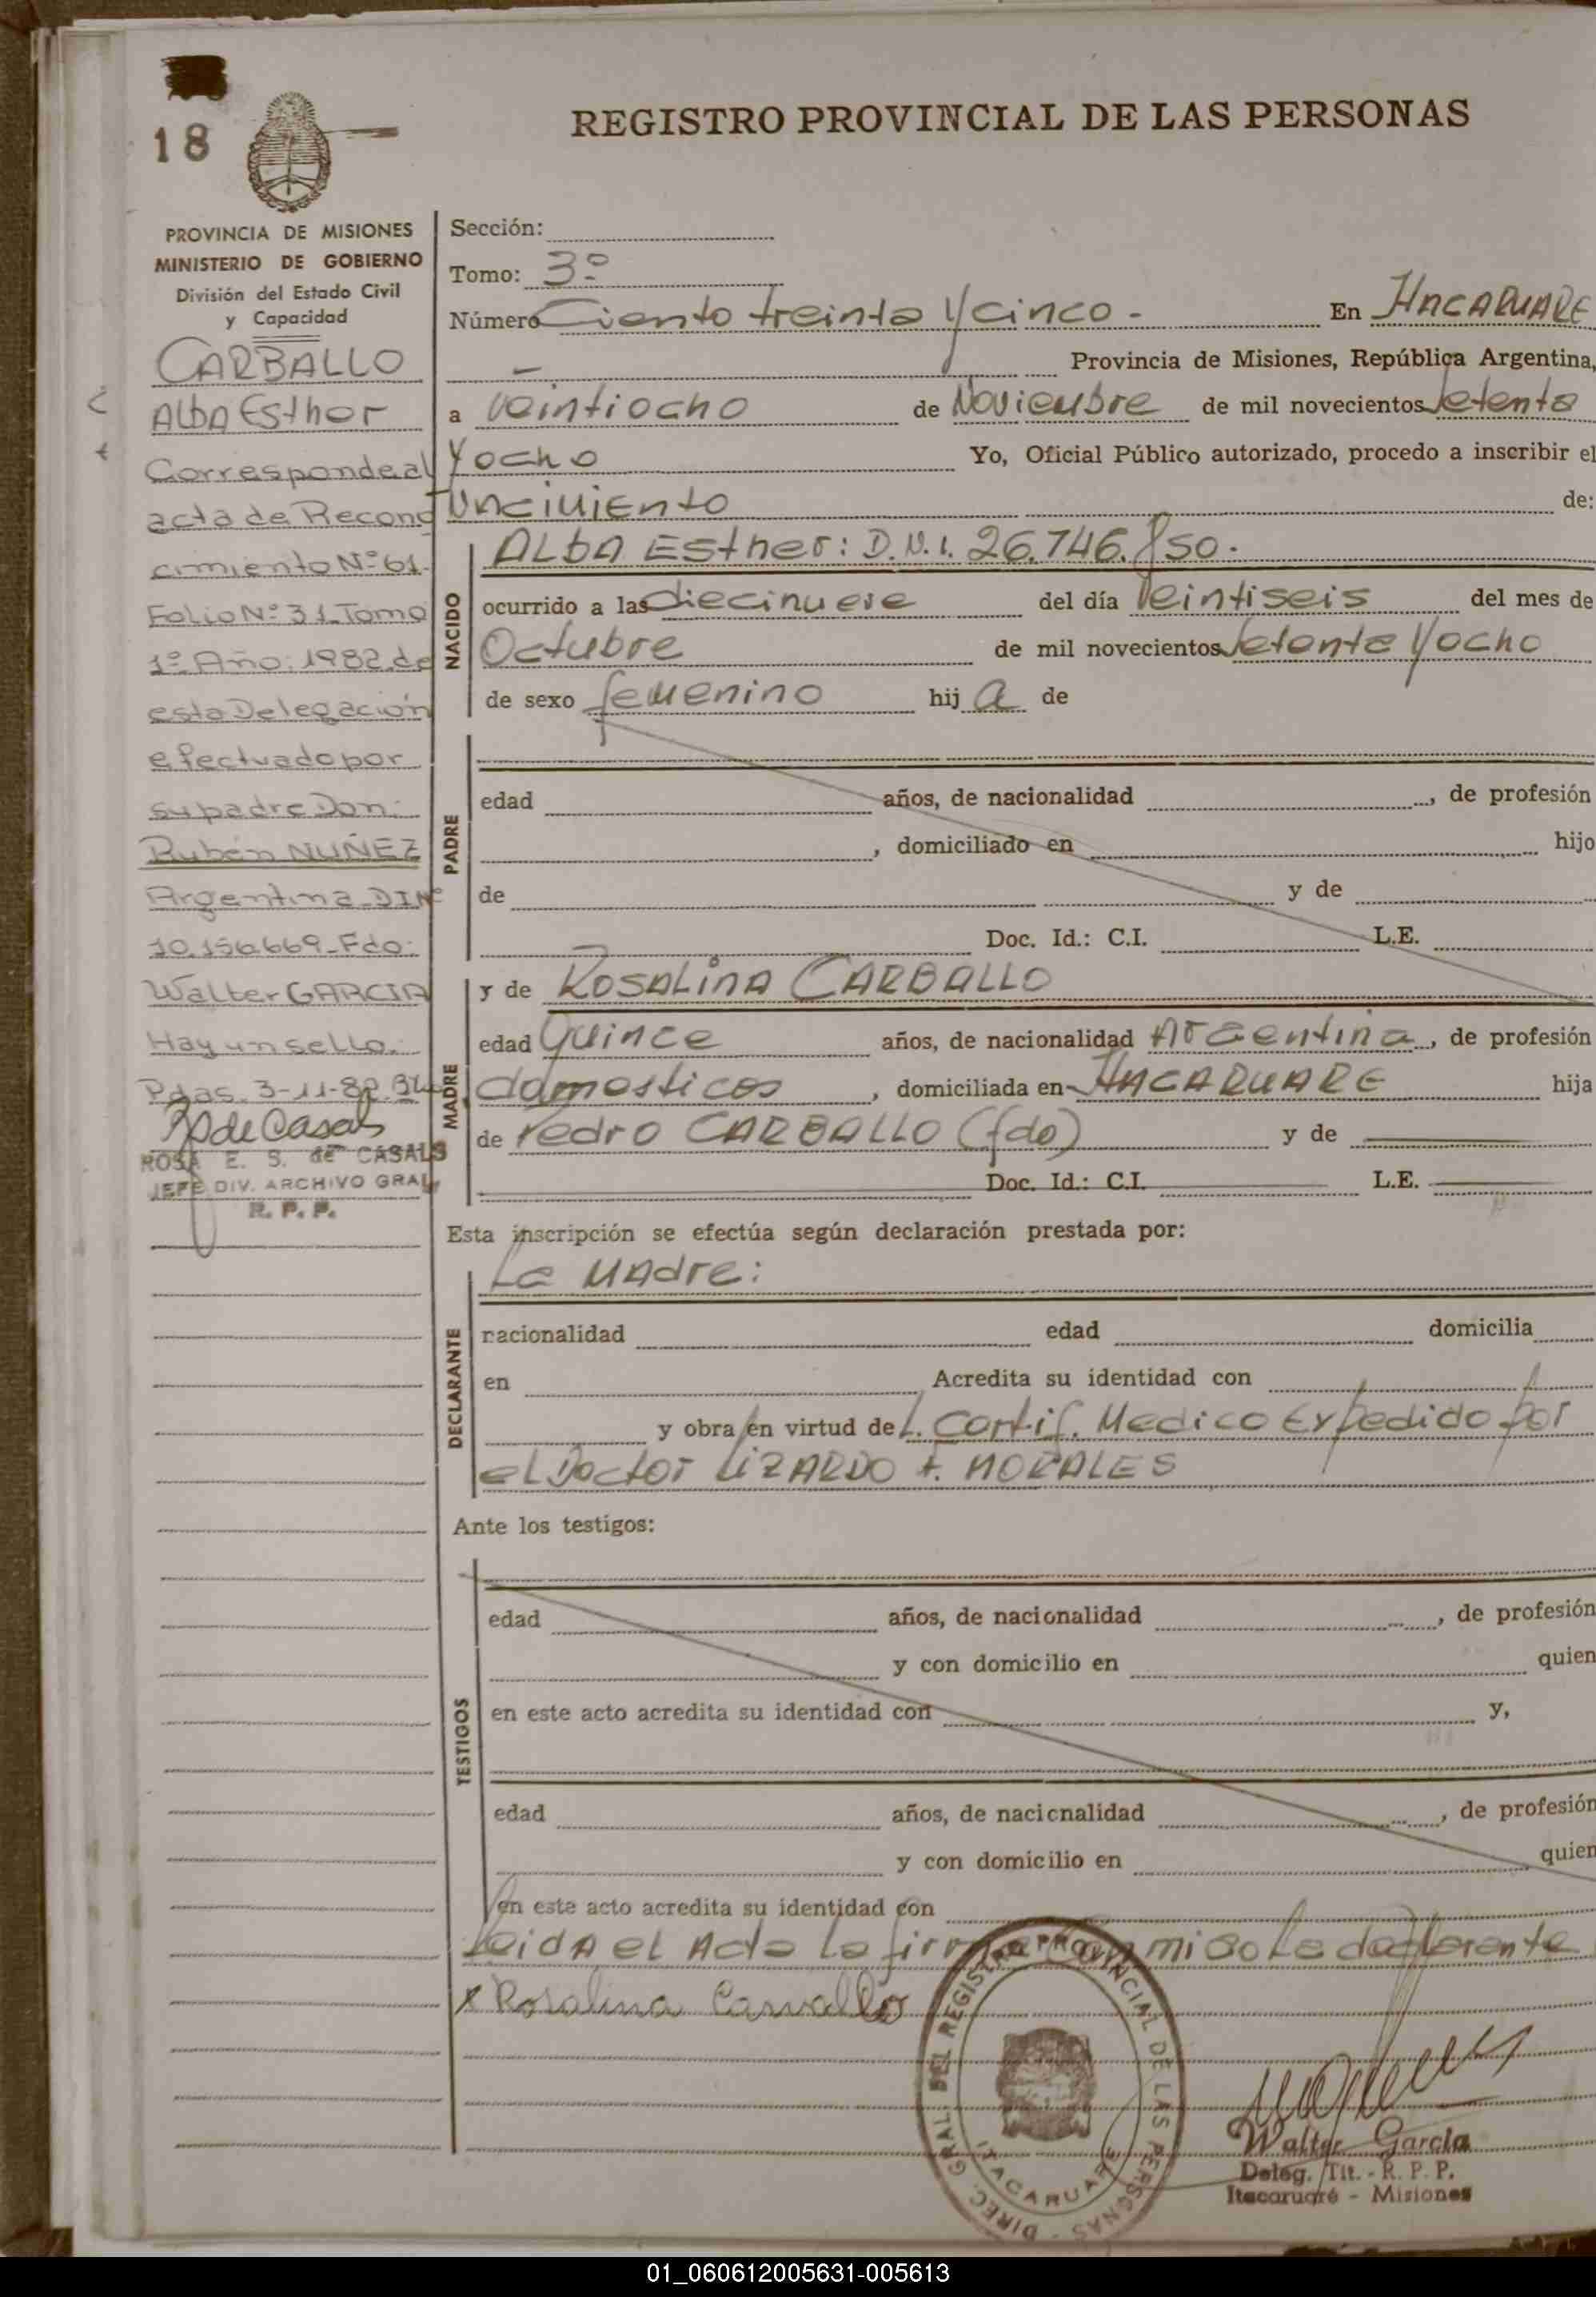 18
REGISTRO PROVINCIAL DE LAS PERSONAS
PROVINCIA DE MISIONES
MINISTERIO DE GOBIERNO
División del Estado Civil
y Capacidad
CARBALLO
Alba Esther
Corresponde al
acta de Recono
cimiento Nº 61.
Folio Nº 31 Tomo
1º Año: 1982 de
esta Delegación
efectuado por
su padre Don:
Rubén NUÑEZ
Argentina DINº
10.156.669_Fdo:
Walter GARCIA
Hay un sello.
Pdas. 3-11-82.
R de Casals
ROSA E. S. de CASALS
JEFE DIV. ARCHIVO GRAL.
R. P. P.
Sección:
Tomo: 3º
Número Ciento treinta y cinco - En ITACARUARE
Provincia de Misiones, República Argentina,
a Veintiocho de Noviembre de mil novecientos setenta
y ocho Yo, Oficial Público autorizado, procedo a inscribir el
nacimiento de:
NACIDO
ALBA Esther: D.N.I. 26.746.850.
ocurrido a las diecinueve del día Veintiseis del mes de
Octubre de mil novecientos setenta y ocho
de sexo femenino hij a de
PADRE
edad años, de nacionalidad , de profesión
, domiciliado en hijo
de y de
Doc. Id.: C.I. L.E.
MADRE
y de ROSALINA CARBALLO
edad Quince años, de nacionalidad Argentina, de profesión
domesticos, domiciliada en ITACARUARE hija
de Pedro CARBALLO (fdo) y de
Doc. Id.: C.I. L.E.
Esta inscripción se efectúa según declaración prestada por:
DECLARANTE
La Madre:
nacionalidad edad domicilia
en Acredita su identidad con
y obra en virtud de L. Certif. Medico Expedido por
el Doctor LIZARDO F. MORALES
Ante los testigos:
TESTIGOS
edad años, de nacionalidad , de profesión
y con domicilio en quien
en este acto acredita su identidad con y,
edad años, de nacionalidad , de profesión
y con domicilio en quien
en este acto acredita su identidad con
Leida el Acta la firma Conmigo la declarante
x Rosalina Carvallo
DIREC. GRAL. DEL REGISTRO PROVINCIAL DE LAS PERSONAS -
ITACARUARE
Walter García
Deleg. Tit. - R. P. P.
Itacaruaré - Misiones
01_060612005631-005613